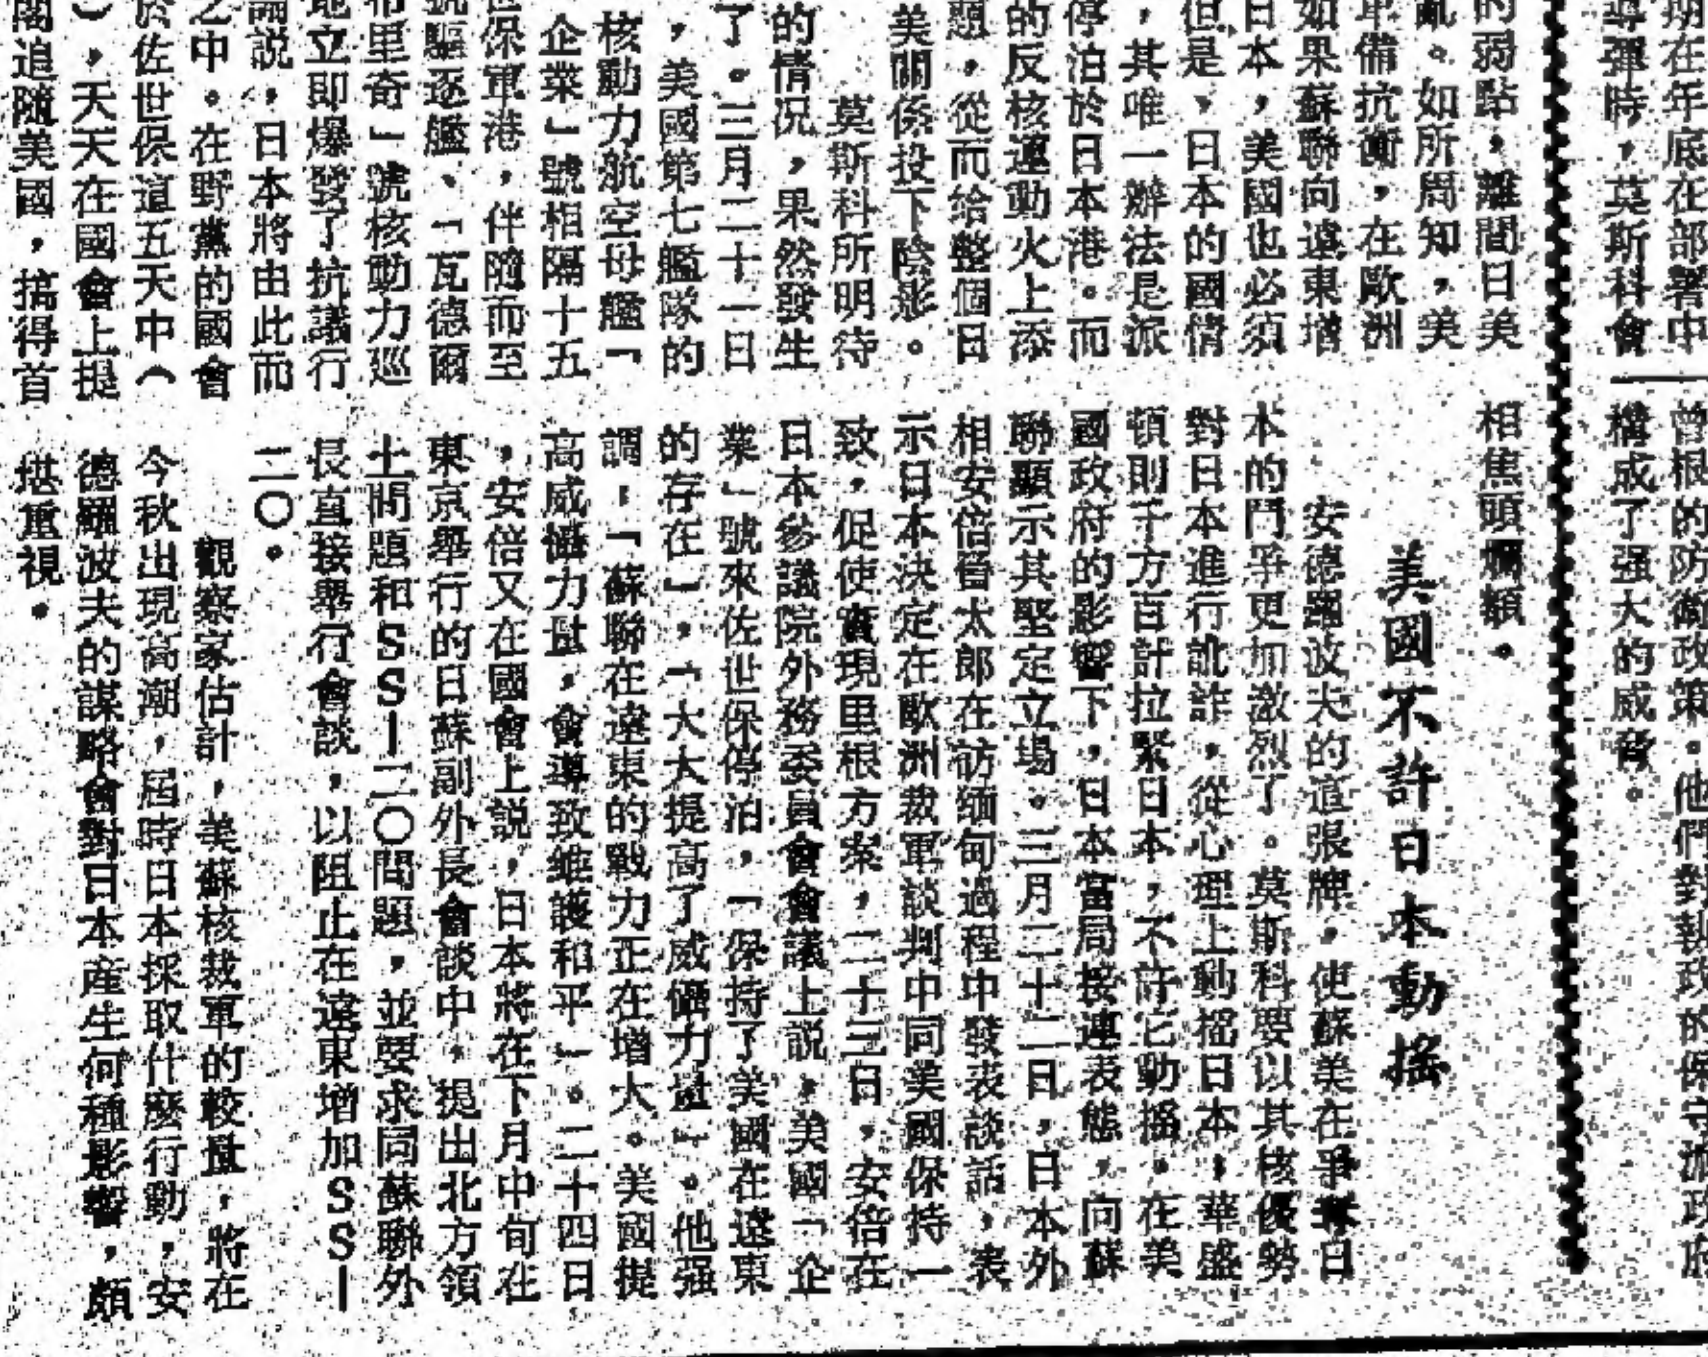 期在年底在部署中
導彈時,莫斯科會
曾根的防衛政策。他們對執政的保守派政府
構成了强大的威脅。
的弱點,離間日美
亂。如所周知,美
軍備抗衡,在歐洲
如果蘇聯向遠東增
日本,美國也必須
但是,日本的國情
,其唯一辦法是派
停泊於日本港。而
的反核運動火上添
題,從而给整個日
美關係投下陰影。
莫斯科所明待
的情况,果然發生
了。三月二十一日
,美國第七艦隊的
核動力航空母艦「
企業」號相隔十五
世保軍港,伴隨而至
號驅逐艦、「瓦德爾
布里奇」號核動力巡
地立即爆發了抗議行
論説,日本將由此而
之中。在野黨的國會
於佐世保這五天中(
),天天在國會上提
閣追隨美國,搞得首
相焦頭爛額。
美國不許日本動搖
安德羅波夫的這張牌,使蘇美在爭奪日
本的鬥爭更加激烈了。莫斯科要以其核優勢
對日本進行訛詐,從心理上動摇日本,華盛
頓則千方百計拉緊日本,不許它動摇。在美
國政府的影響下,日本當局接連表態,向蘇
聯顯示其堅定立場。三月二十二日,日本外
相安倍晉太郎在訪缅甸過程中發表談話,表
示日本决定在歐洲裁軍談判中同美國保持一
致,促使實現里根方案,二十三日,安倍在
日本參議院外務委員會會議上説,美國「企
業」號來佐世保停泊,「保持了美國在遠東
的存在」,「大大提高了威懾力量」。他强
調:「蘇聯在遠東的戰力正在增大。美國提
高威懾力量,會導致維護和平」。二十四日
,安倍又在國會上説,日本將在下月中旬在
東京舉行的日蘇副外長會談中,提出北方領
土問題和SS—二〇問題,並要求同蘇聯外
長直接舉行會談,以阻止在遠東增加SS—
二〇。
觀察家估計,美蘇核裁軍的較量,將在
今秋出現高潮,屆時日本採取什麽行動,安
德羅波夫的謀略會對日本産生何種影響,頗
堪重視。